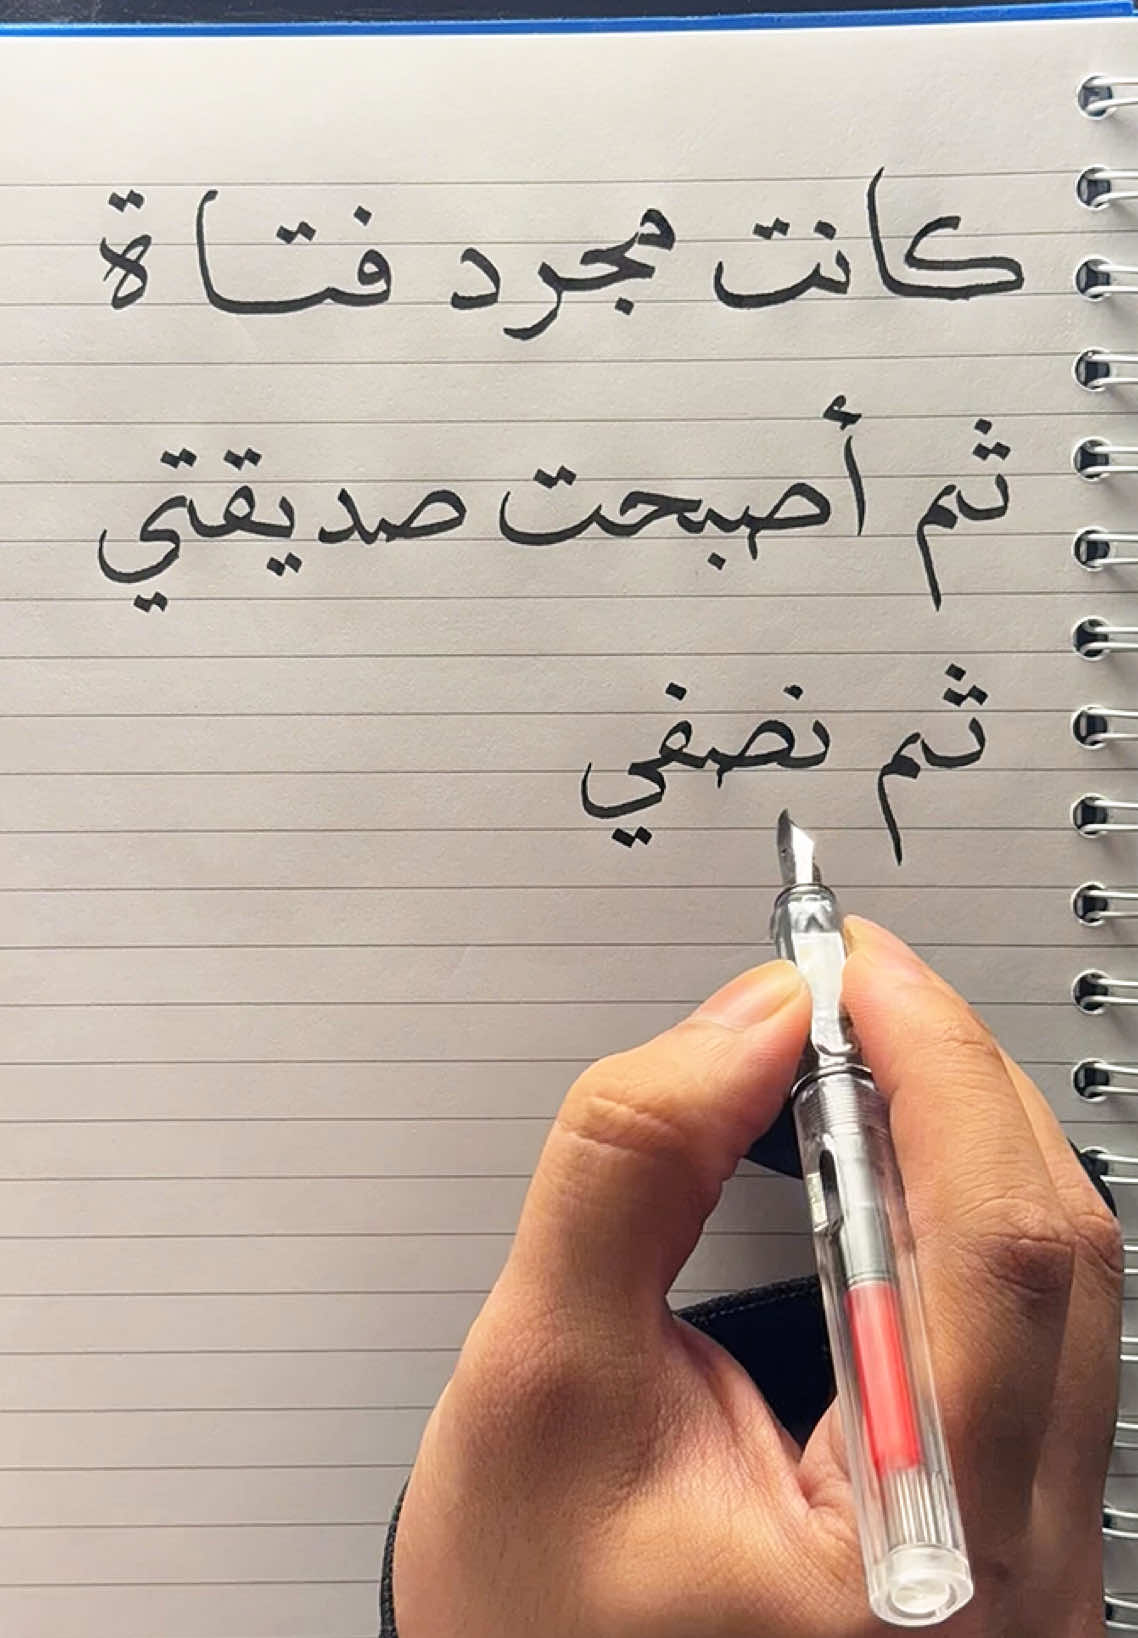 كانت مجرد فتاة
ثم أصبحت صديقتي
ثم نصفي